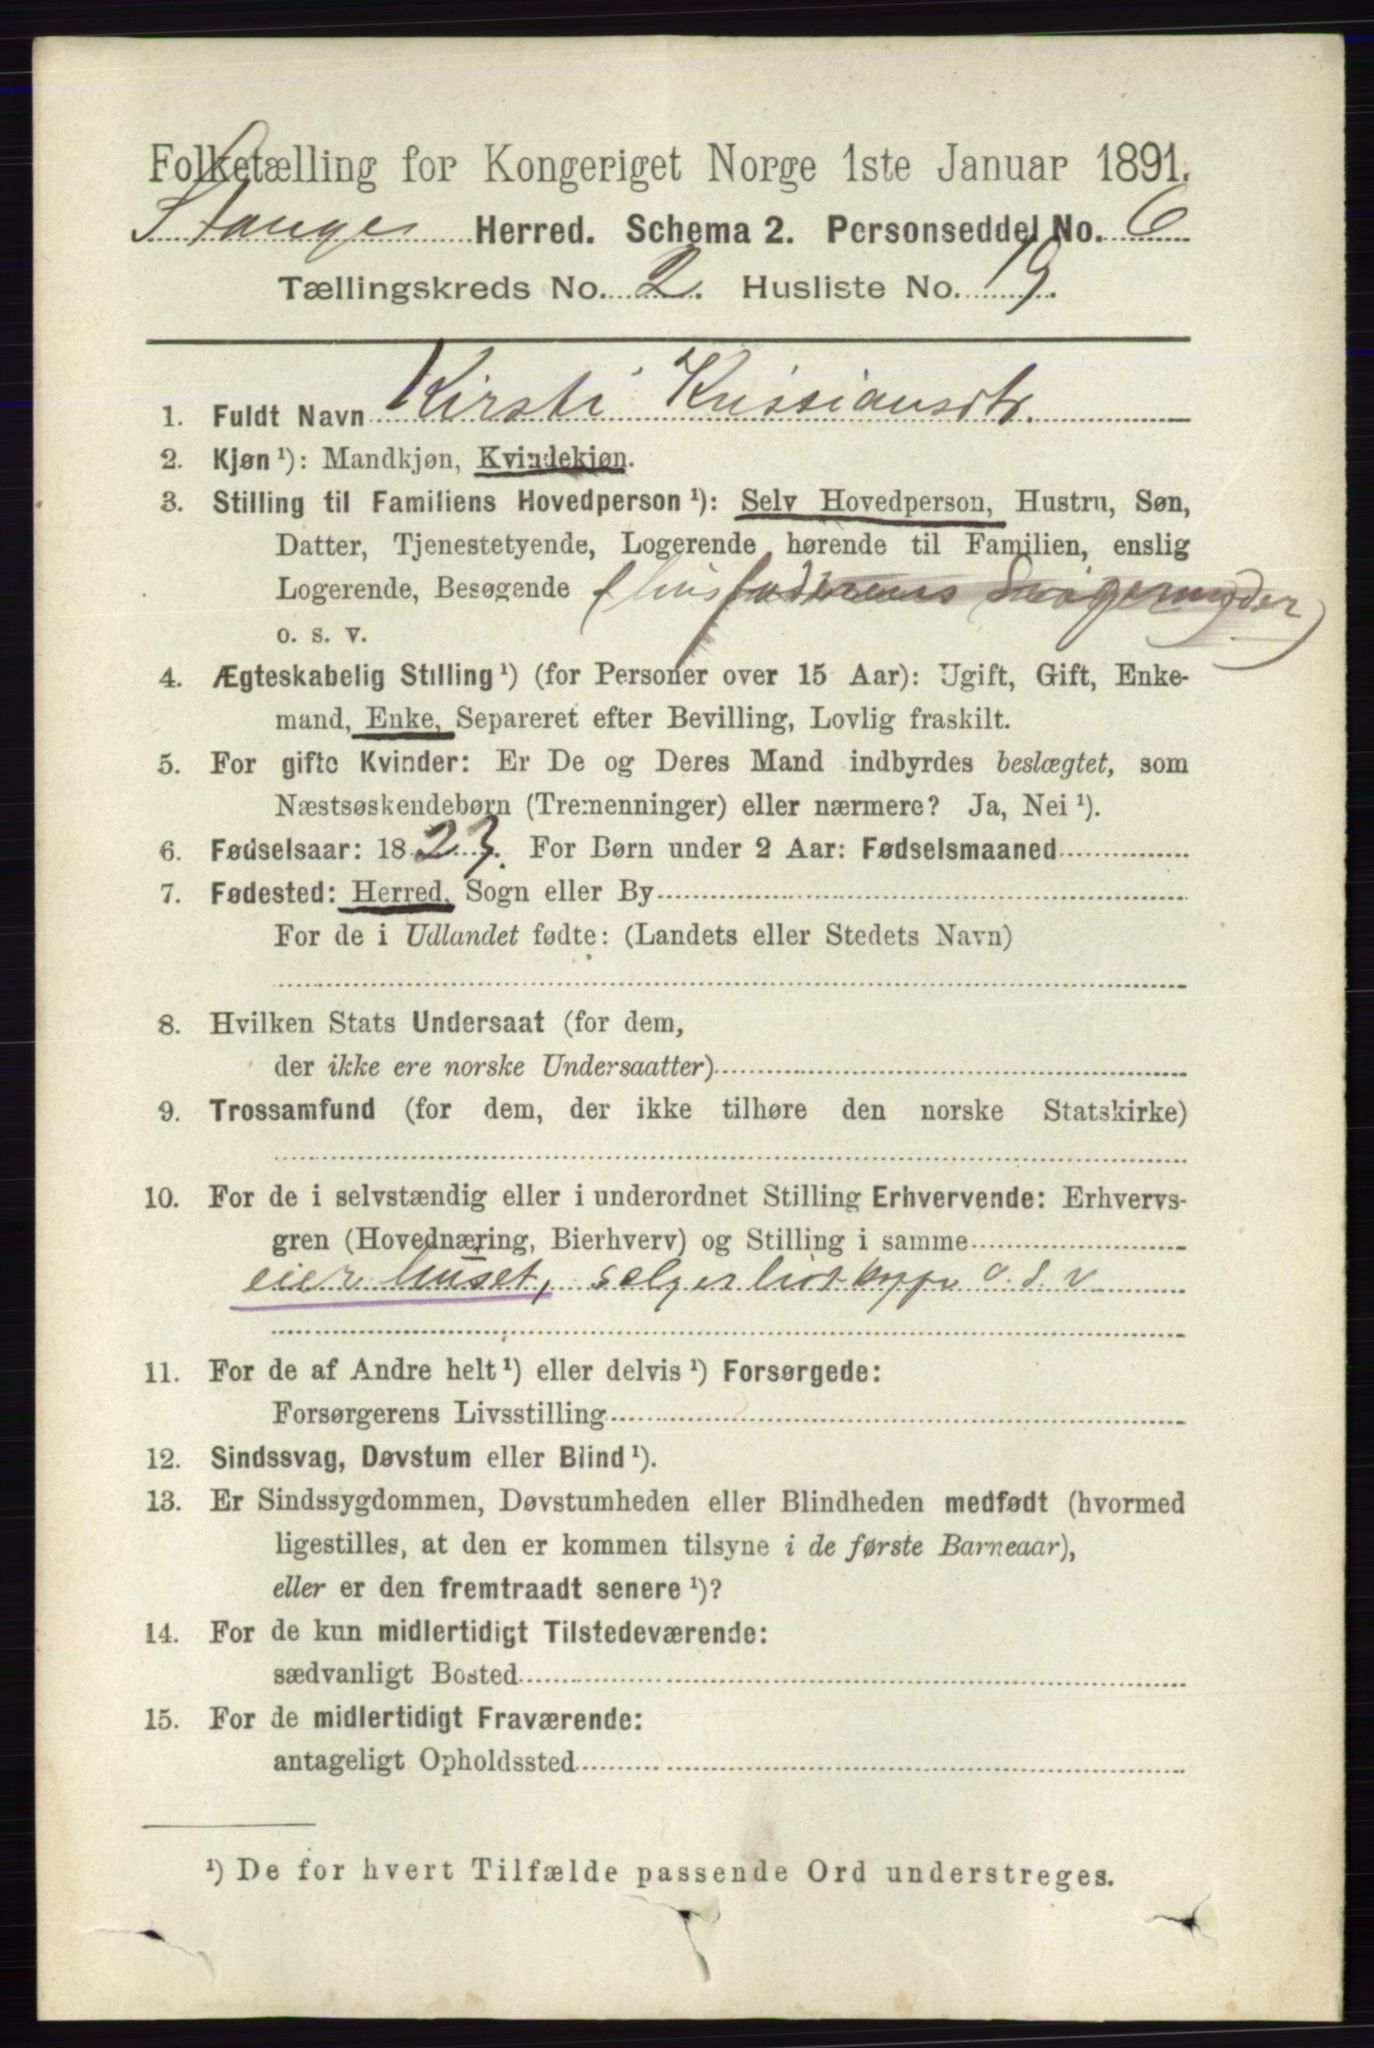 Folketælling for Kongeriget Norge 1ste Januar 1891.
Stange Herred. Schema 2. Personseddel No. 6
Tællingskreds No. 2. Husliste No. 19.
1. Fuldt Navn Kirsti Kristiansdtr.
2. Kjøn ¹): Mandkjøn, Kvindekjøn.
3. Stilling til Familiens Hovedperson ¹): Selv Hovedperson, Hustru, Søn,
Datter, Tjenestetyende, Logerende hørende til Familien, enslig
Logerende, Besøgende (husfaderens Svigermoder)
o. s. v.
4. Ægteskabelig Stilling ¹) (for Personer over 15 Aar): Ugift, Gift, Enke-
mand, Enke, Separeret efter Bevilling, Lovlig fraskilt.
5. For gifte Kvinder: Er De og Deres Mand indbyrdes beslægtet, som
Næstsøskendebørn (Tremenninger) eller nærmere? Ja, Nei ¹).
6. Fødselsaar: 1823. For Børn under 2 Aar: Fødselsmaaned
7. Fødested: Herred, Sogn eller By
For de i Udlandet fødte: (Landets eller Stedets Navn)
8. Hvilken Stats Undersaat (for dem,
der ikke ere norske Undersaatter)
9. Trossamfund (for dem, der ikke tilhøre den norske Statskirke)
10. For de i selvstændig eller i underordnet Stilling Erhvervende: Erhvervs-
gren (Hovednæring, Bierhverv) og Stilling i samme
eier huset, selger o. s. v
11. For de af Andre helt ¹) eller delvis ¹) Forsørgede:
Forsørgerens Livsstilling
12. Sindssvag, Døvstum eller Blind ¹).
13. Er Sindssygdommen, Døvstumheden eller Blindheden medfødt (hvormed
ligestilles, at den er kommen tilsyne i de første Barneaar),
eller er den fremtraadt senere ¹)?
14. For de kun midlertidigt Tilstedeværende:
sædvanligt Bosted
15. For de midlertidigt Fraværende:
antageligt Opholdssted
¹) De for hvert Tilfælde passende Ord understreges.